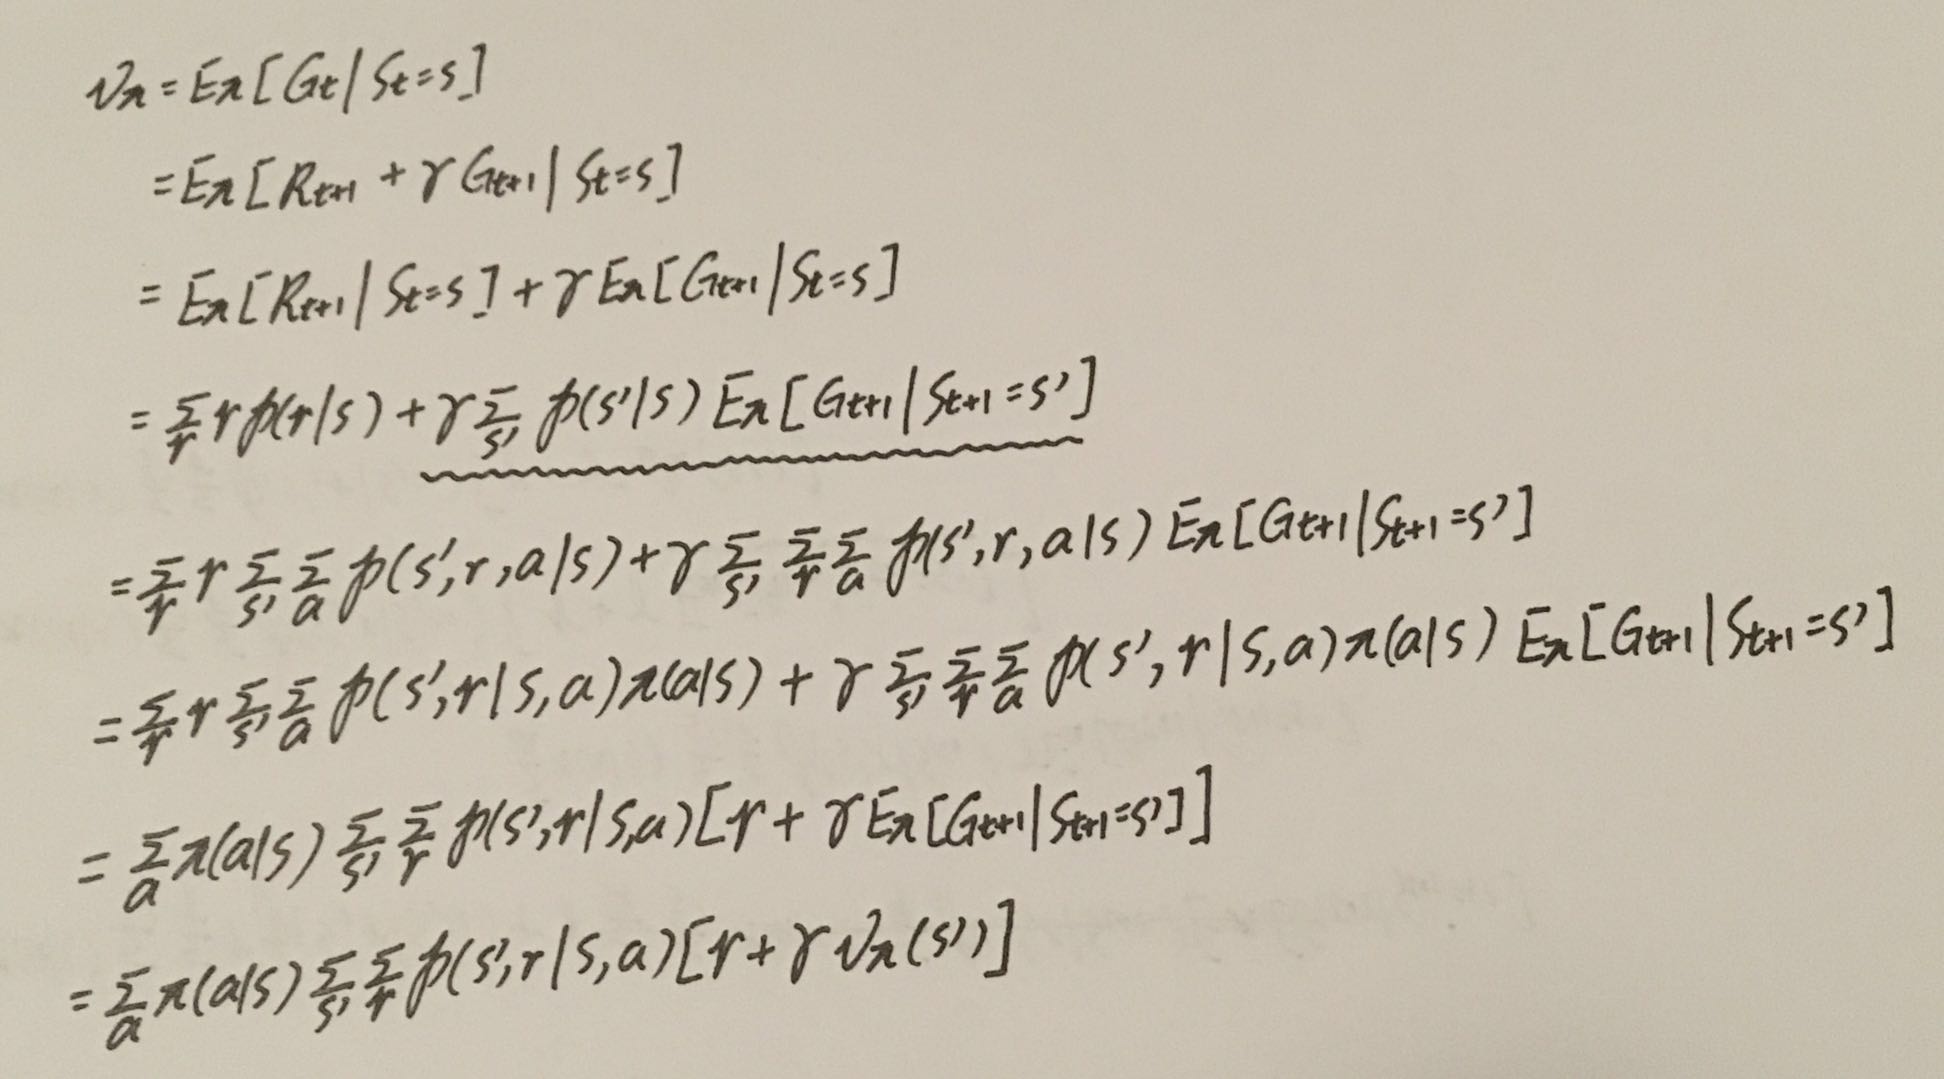 vπ = Eπ[Gt | St = s]
= Eπ[Rt+1 + γGt+1 | St = s]
= Eπ[Rt+1 | St = s] + γEπ[Gt+1 | St = s]
= Σr r p(r|s) + γ Σs' p(s'|s) Eπ[Gt+1 | St+1 = s']
= Σr r Σs' Σa p(s', r, a|s) + γ Σs' Σr Σa p(s', r, a|s) Eπ[Gt+1 | St+1 = s']
= Σr r Σs' Σa p(s', r|s, a)π(a|s) + γ Σs' Σr Σa p(s', r|s, a)π(a|s) Eπ[Gt+1 | St+1 = s']
= Σa π(a|s) Σs' Σr p(s', r|s,a)[r + γEπ[Gt+1 | St+1 = s']]
= Σa π(a|s) Σs' Σr p(s', r|s, a)[r + γvπ(s')]